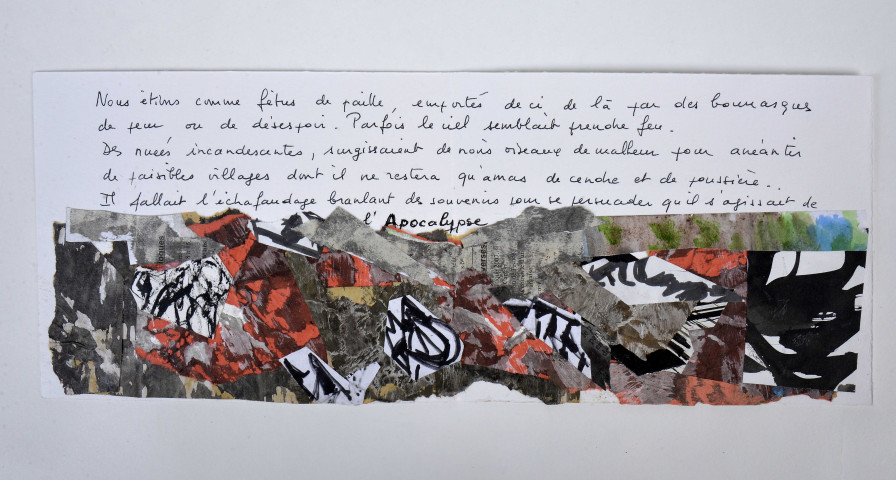 Nous étions comme fétus de paille, emportés de ci de là par des bourrasques
de peur ou de désespoir. Parfois le ciel semblait prendre feu.
Des nuées incandescentes, surgissaient de noirs oiseaux de malheur pour anéantir
de paisibles villages dont il ne restera qu'amas de cendre et de poussière..
Il fallait l'échafaudage branlant des souvenirs pour se persuader qu'il s'agissait de
l'Apocalypse